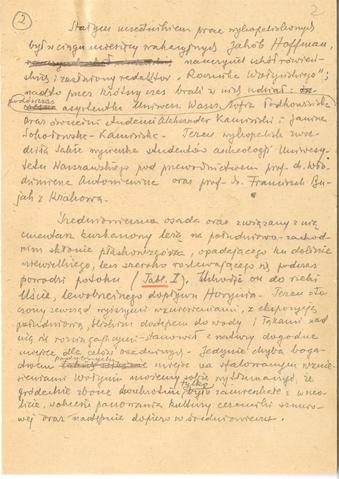 2
2
Stałym uczestnikiem prac wykopaliskowych
był w ciągu miesięcy wakacyjnych Jakób Hoffman,
nauczyciel szkół rówień-
skich i zasłużony redaktor „Rocznika Wołyńskiego";
nadto przez krótszy czas brali w nich udział:
podówczas asystentka Uniwers. Warsz. Zofia Podkowińska
oraz ówcześni studenci Aleksander Kamiński i Janina
Sokołowska-Kamińska. Teren wykopalisk zwie-
dziła także wycieczka studentów archeologii Uniwersy-
tetu Warszawskiego pod przewodnictwem prof. dr. Wło-
dzimierza Antoniewicza oraz prof. dr. Franciszek Bu-
jak z Krakowa.
Średniowieczna osada oraz związany z nią
cmentarz kurhanowy leżą na południowo-zachod-
nim skłonie płaskowzgórza, opadającego ku dolinie
niewielkiego, lecz szeroko rozlewającego się podczas
powodzi potoku (Tabl. I). Uchodzi on do rzeki
Uście, lewobrzeżnego dopływu Horynia. Teren oto-
czony zewsząd wyższymi wzniesieniami, z ekspozycją
południową, bliskim dostępem do wody i łąkami nad
nią się rozciągającymi - stanowił z natury dogodne
miejsce dla celów osadniczych. Jedynie chyba boga-
ctwem miejsc na sfalowanym wznie-
sieniami Wołyniu możemy sobie wytłumaczyć, że
gródeckie zbocze dwukrotnie tylko było zamieszkałe: w neo-
licie, wówczas panowania kultury ceramiki sznuro-
wej oraz następnie dopiero w średniowieczu.